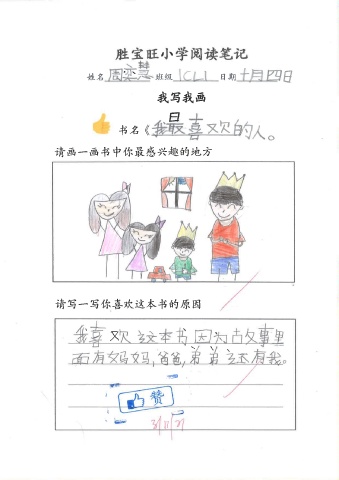 胜宝旺小学阅读笔记
姓名 周奕慧 班级 1CL1 日期 十月四日
我写我画
书名《我最喜欢的人。
请画一画书中你最感兴趣的地方
请写一写你喜欢这本书的原因
我喜欢这本书因为古攵事里
面有妈妈,爸爸,弟弟还有我。
赞
3/11/21